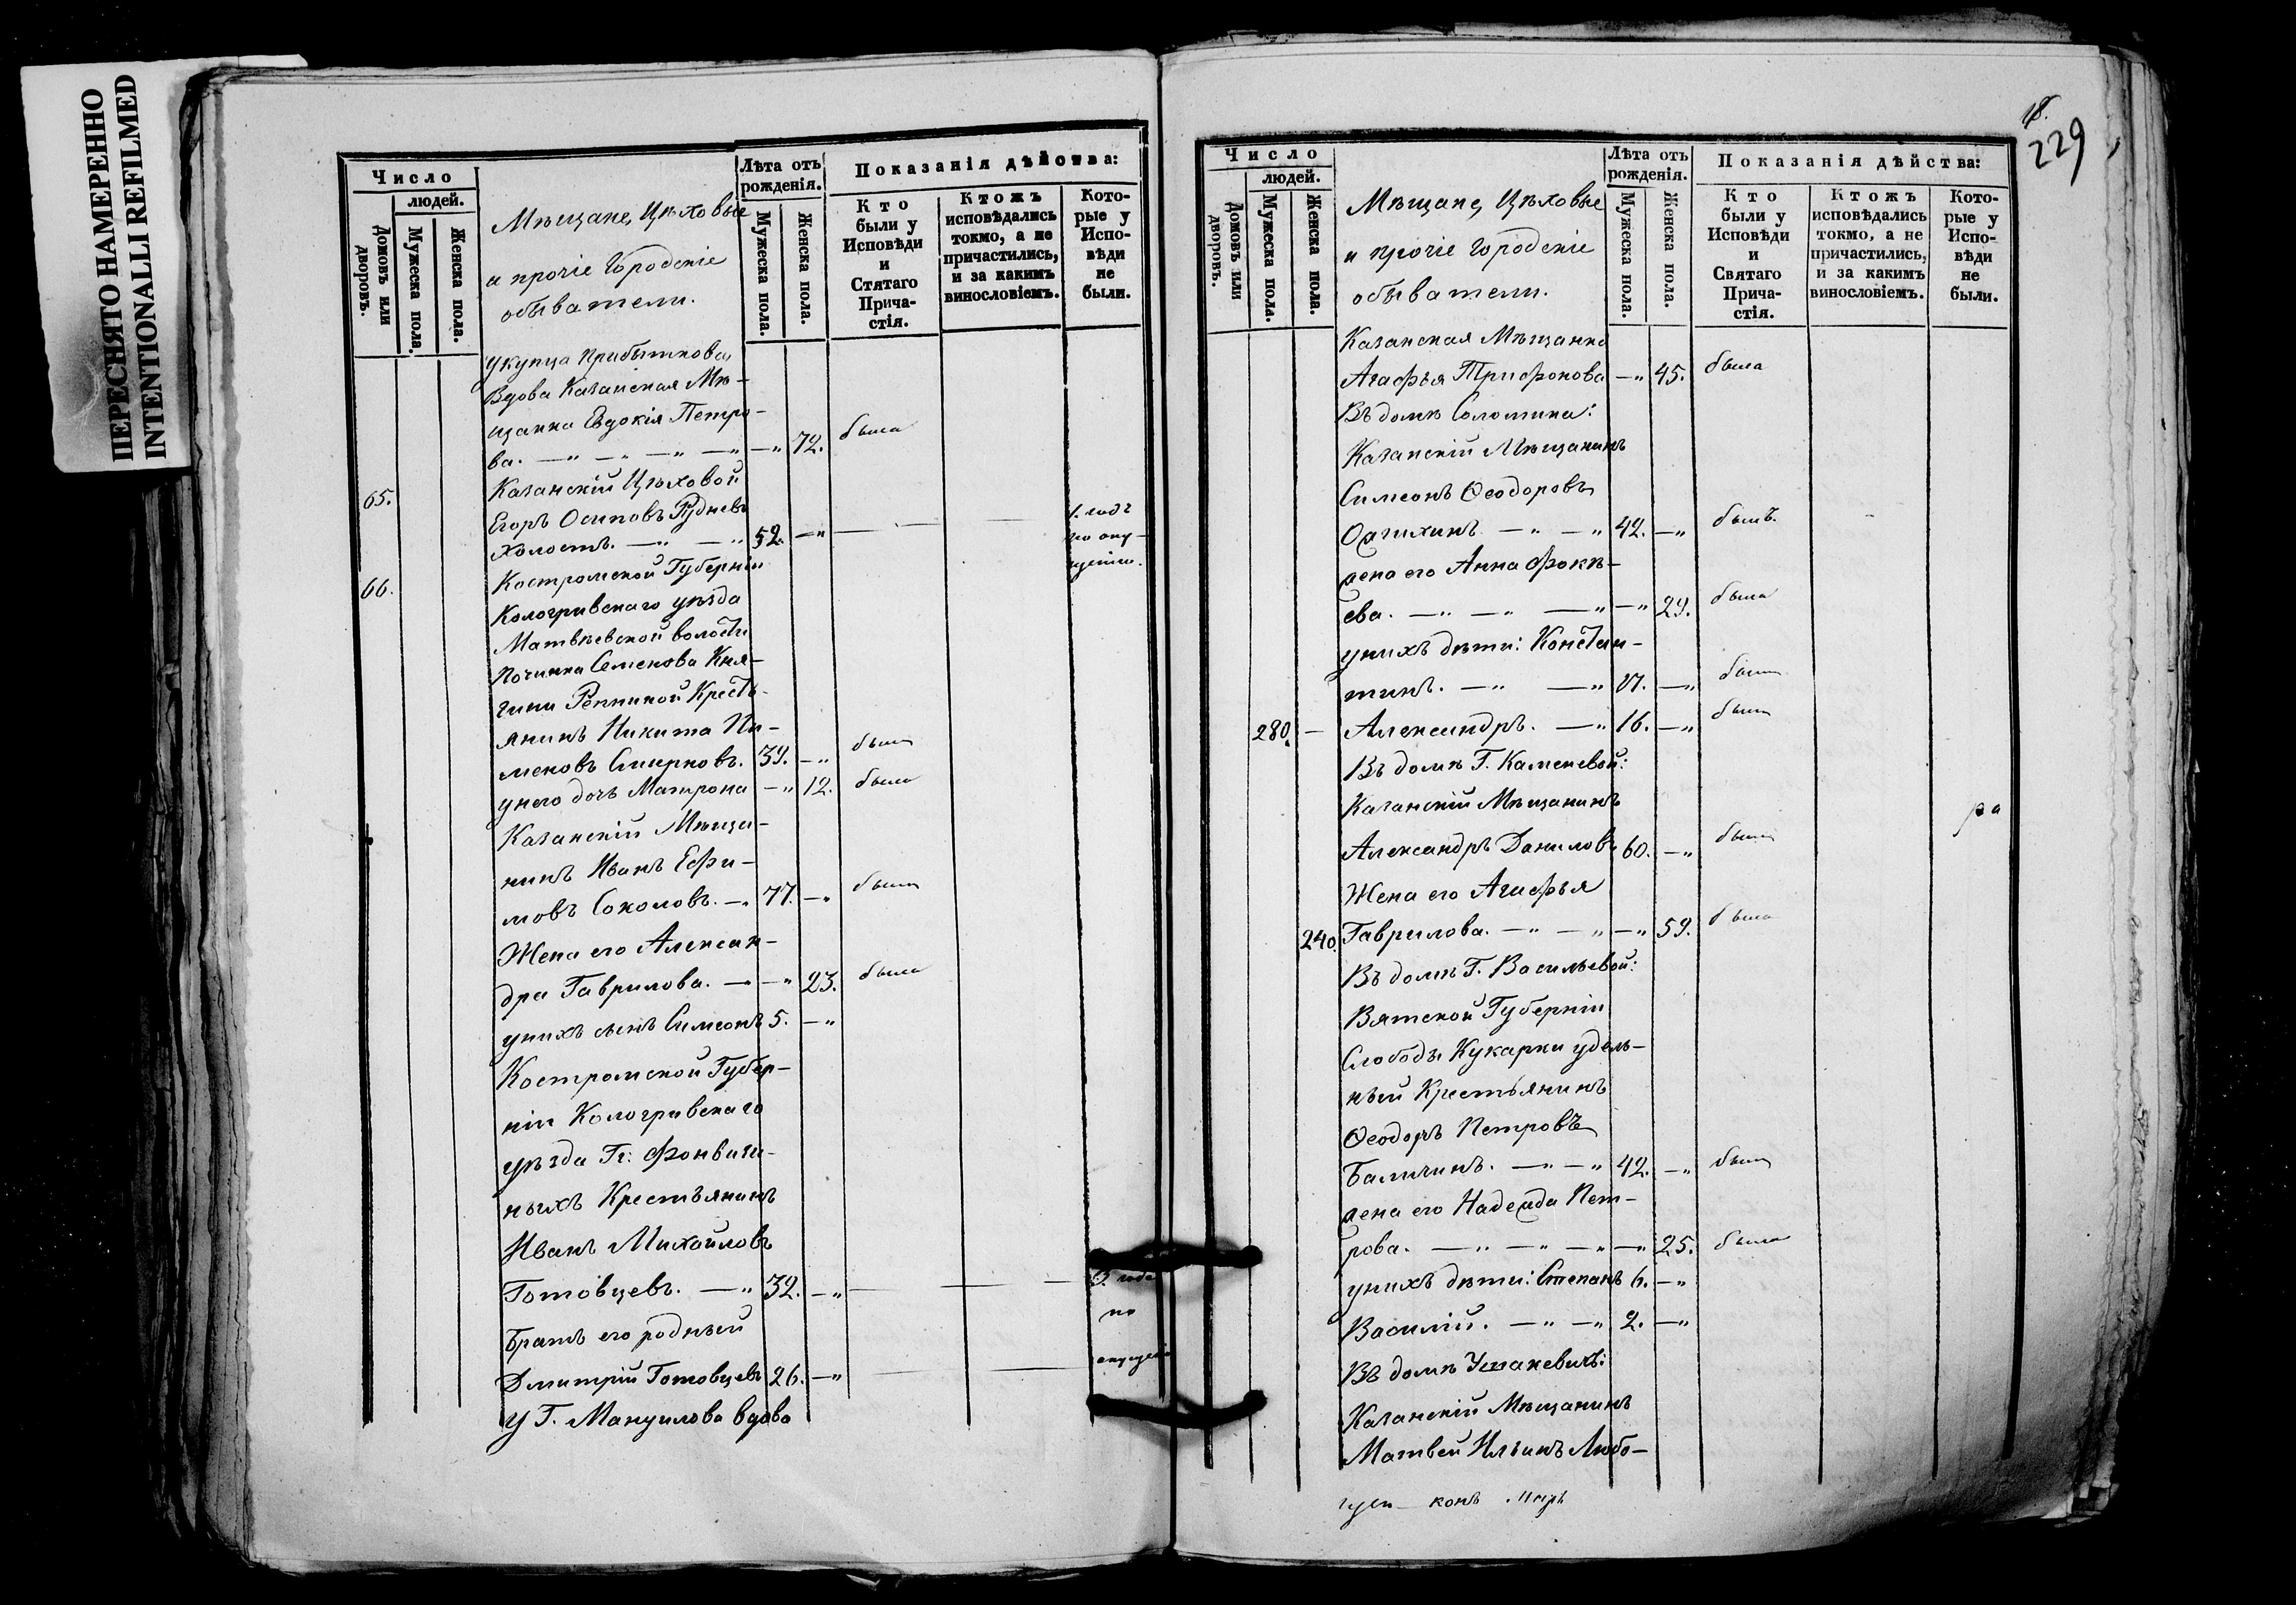 ПЕРЕСНЯТО НАМЕРЕННО
INTENTIONALLI REFILMED
Число
людей.
Домовъ или дворовъ.
Мужеска пола.
Женска пола.
Мѣщане, Цѣховые
и прочіе Городскіе
обыватели.
Лѣта отъ рожденія.
Мужеска пола.
Женска пола.
Показанія дѣйства:
Кто были у Исповѣди и Стятаго Прича-стія.
Ктожъ исповѣдались токмо, а не причастились, и за какимъ винословіемъ.
Кото-рые у Испо-вѣди не были.
у купца Прибыткова
Вдова Казанская Мѣ-
щанка Евдокія Петро-
ва. — " — " — " — " — " 72. была
65. Казанскій Цѣховой
Егоръ Осиповъ Рудневъ
холостъ. — " — " 52. — "
1. годъ
по опу-
щенію.
66. Костромской Губерніи
Кологривскаго уѣзда
Матвѣевской волости
Починка Семенова Кня-
гини Репниной Кресть-
янинъ Никита Пи-
меновъ Смирновъ. 39. — " былъ
у него дочь Матрона — " 12. была
Казанскій Мѣща-
нинъ Иванъ Ефи-
мовъ Соколовъ. — " 77. — " былъ
Жена его Алексан-
дра Гаврилова. — — " 23. была
у нихъ сынъ Симеонъ 5. — "
Костромской Губер-
ніи Кологривскаго
уѣзда Гг: Фонвизи-
ныхъ Крестьянинъ
Иванъ Михайловъ
Готовцевъ. — " 32. — "
года
по
Братъ его родный
Дмитрій Готовцевъ 26. — " опущенію
У Г. Мануилова вдова
18.
229
Число
людей.
Домовъ или дворовъ.
Мужеска пола.
Женска пола.
Мѣщане, Цѣховые
и прочіе Городскіе
обыватели.
Лѣта отъ рожденія.
Мужеска пола.
Женска пола.
Показанія дѣйства:
Кто были у Исповѣди и Святаго Прича-стія.
Ктожъ исповѣдались токмо, а не причастились, и за какимъ винословіемъ.
Кото-рые у Испо-вѣди не были.
Казанская Мѣщанка
Агафья Трифонова — " 45. была
Въ домѣ Соломина:
Казанскій Мѣщанинъ
Симеонъ Ѳеодоровъ
— " — " 42. — " былъ.
жена его Анна Фокѣ-
ева. — " — " — " — " 29. была
у нихъ дѣти: Констан-
тинъ. — " — " — " былъ
280. — Александръ. — " 16. — " былъ
Въ домѣ Г. Каменевой:
Казанскій Мѣщанинъ
Александръ Даниловъ 60. — " былъ
Жена его Агафья
240. Гаврилова. — " — " — " 59. была
Въ домѣ Г. Васильевой:
Вятской Губерніи
Слободы Кукарки удѣль-
ный Крестьянинъ
Ѳеодоръ Петровъ
— " — " 42. — " былъ
жена его Надежда Пет-
рова. — " — " — " — " 25. была
у нихъ дѣти: Степанъ 6. — "
Василій. — " — " 2. — "
Въ домѣ
Казанскій Мѣщанинъ
Матвей Ильинъ Любо-